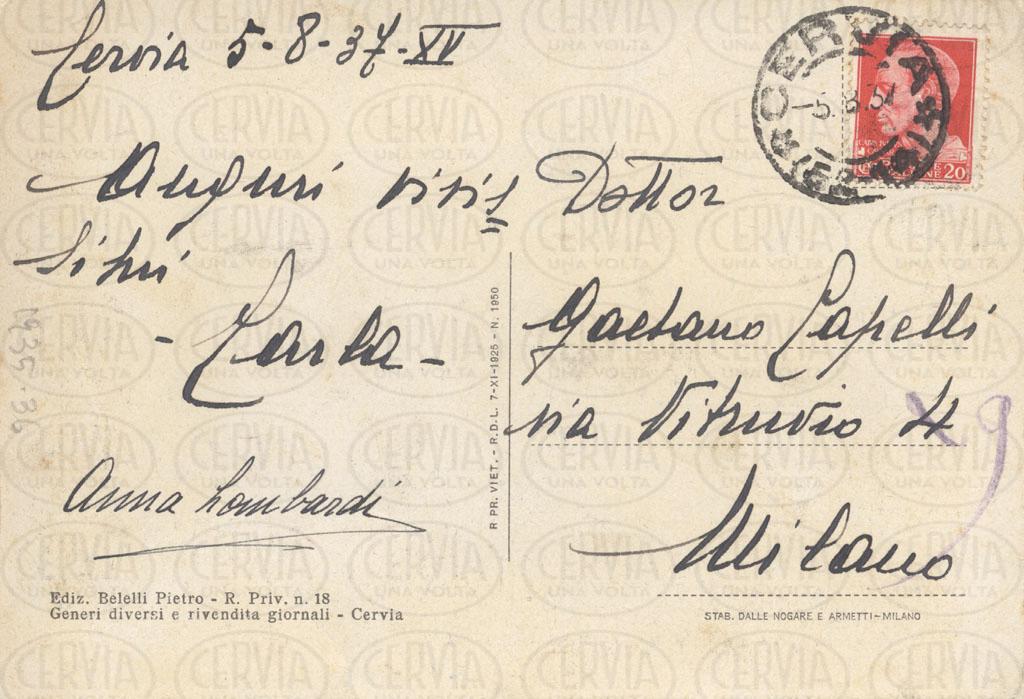 Cervia 5-8-37-XV
Auguri vivis
simi
- Carla -
Anna Lombardi
Ediz. Belelli Pietro - R. Priv. n. 18
Generi diversi e rivendita giornali - Cervia
R PR. VIET. - R.D.L. 7-XI-1925 - N. 1950
CERVIA
-5.8.37
20
Dottor
Gaetano Capelli
via Vitruvio 4
Milano
STAB. DALLE NOGARE E ARMETTI-MILANO
1935-36
CERVIA
UNA VOLTA